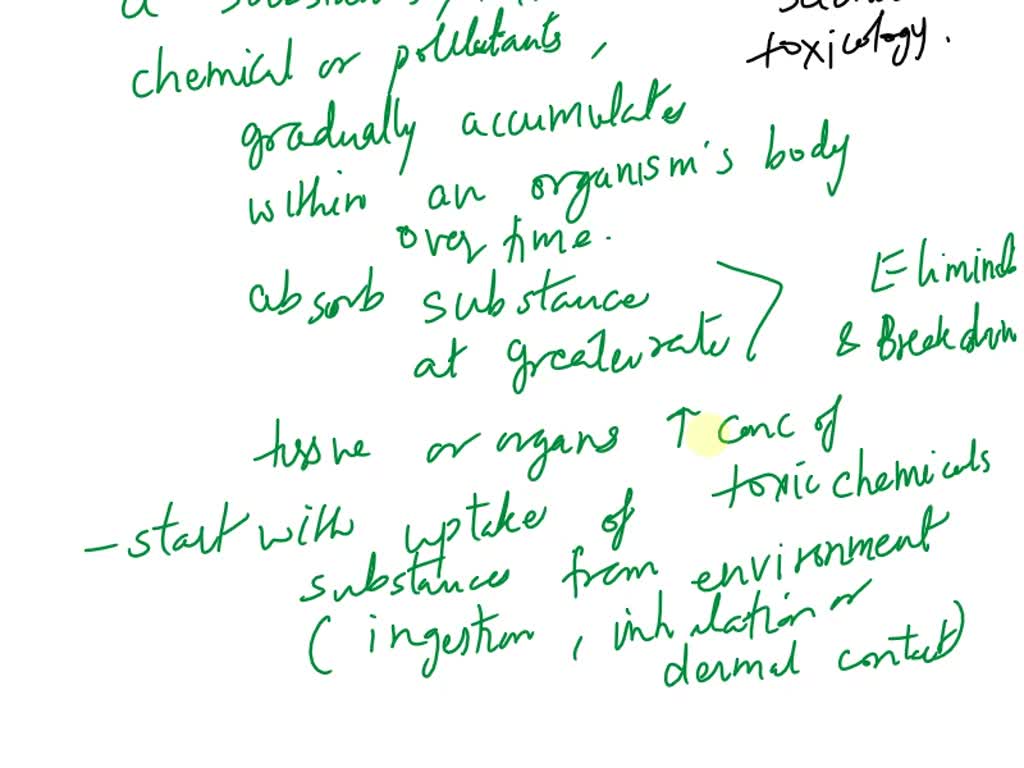 a
toxicology.
chemical or pollutants,
gradually accumulates
within an organism's body
over time.
absorb substance
at greater rate >
& Breakdown
tissue or organs ↑ conc of
toxic chemicals
- start with uptake of
substances from environment
(ingestion, inhalation or
dermal contact)